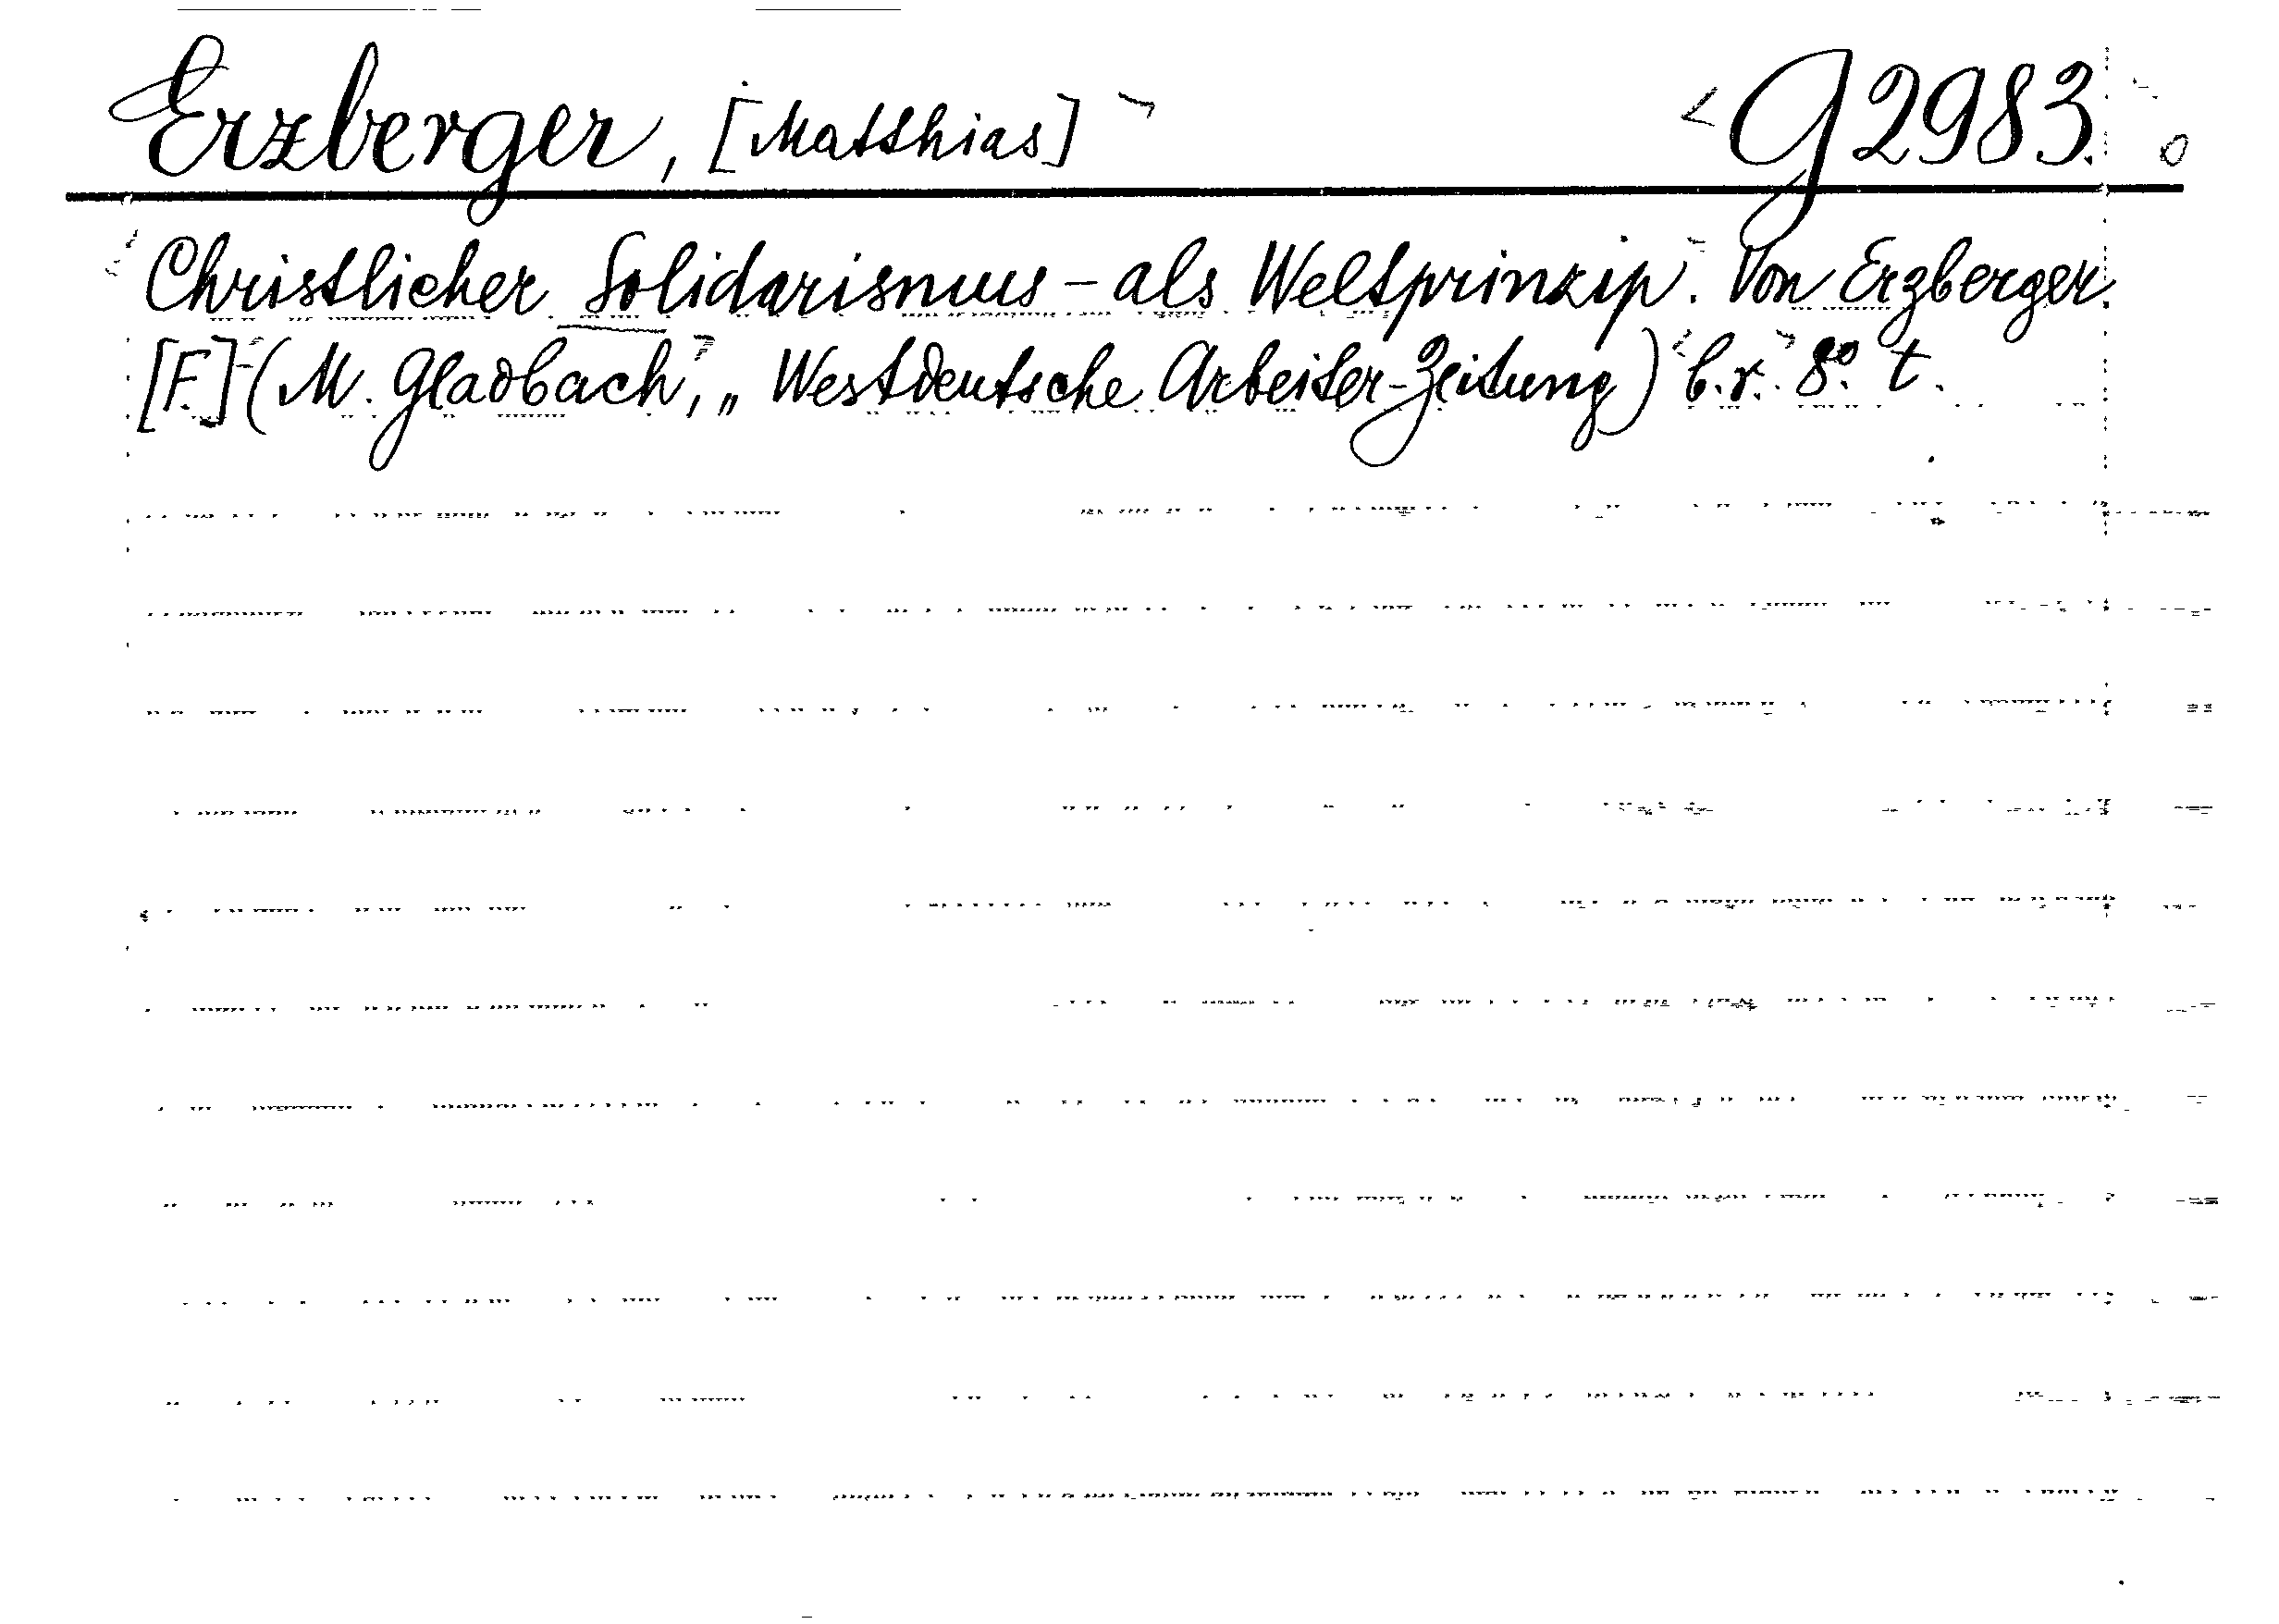 Erzberger, [Matthias] G 2983.
Christlicher Solidarismus - als Weltprinzip. Von Erzberger.
[F.] (M. Gladbach, „Westdeutsche Arbeiter-Zeitung) b. r. 8º. t.